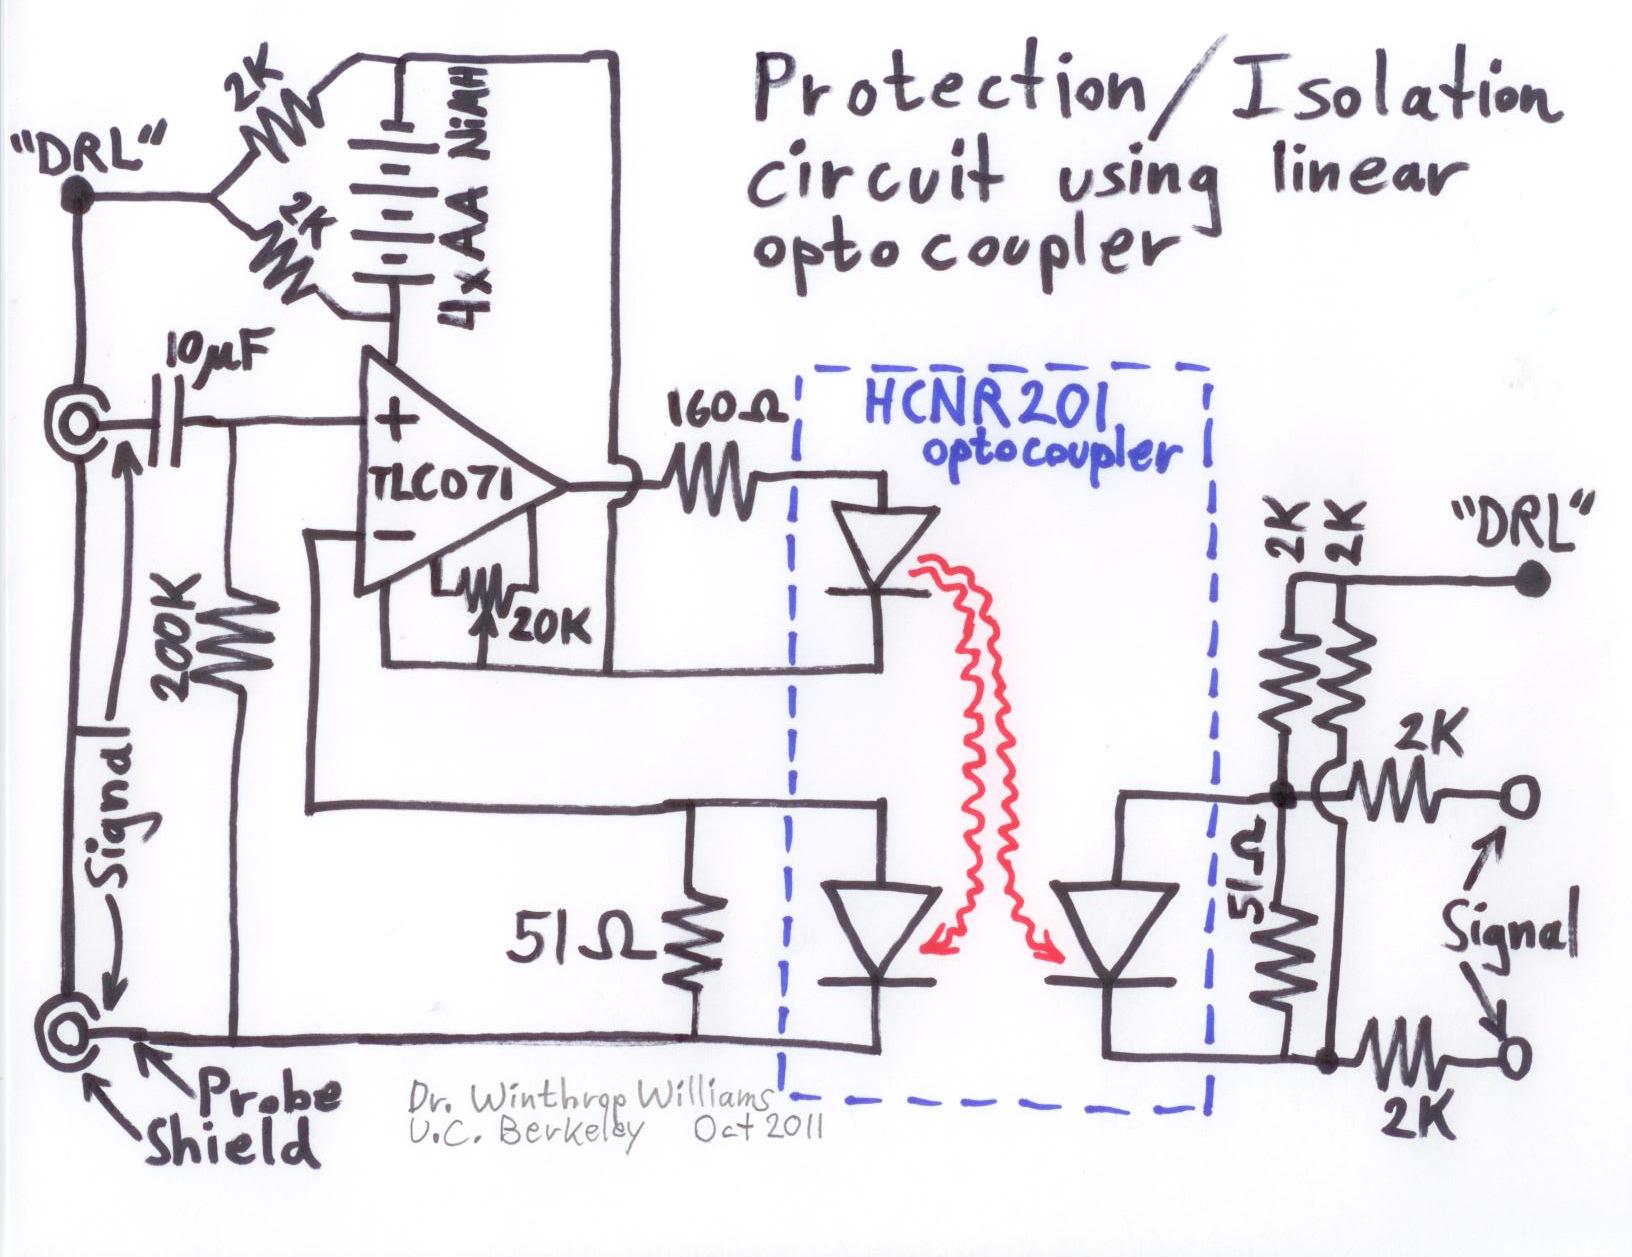 Protection/Isolation
circuit using linear
optocoupler
"DRL"
2K
2K
4xAA NiMH
10µF
+
TLC071
−
160Ω
HCNR201
optocoupler
20K
200K
Signal
51Ω
2K
2K
"DRL"
2K
51Ω
Signal
2K
Probe
Shield
Dr. Winthrop Williams
U.C. Berkeley Oct 2011